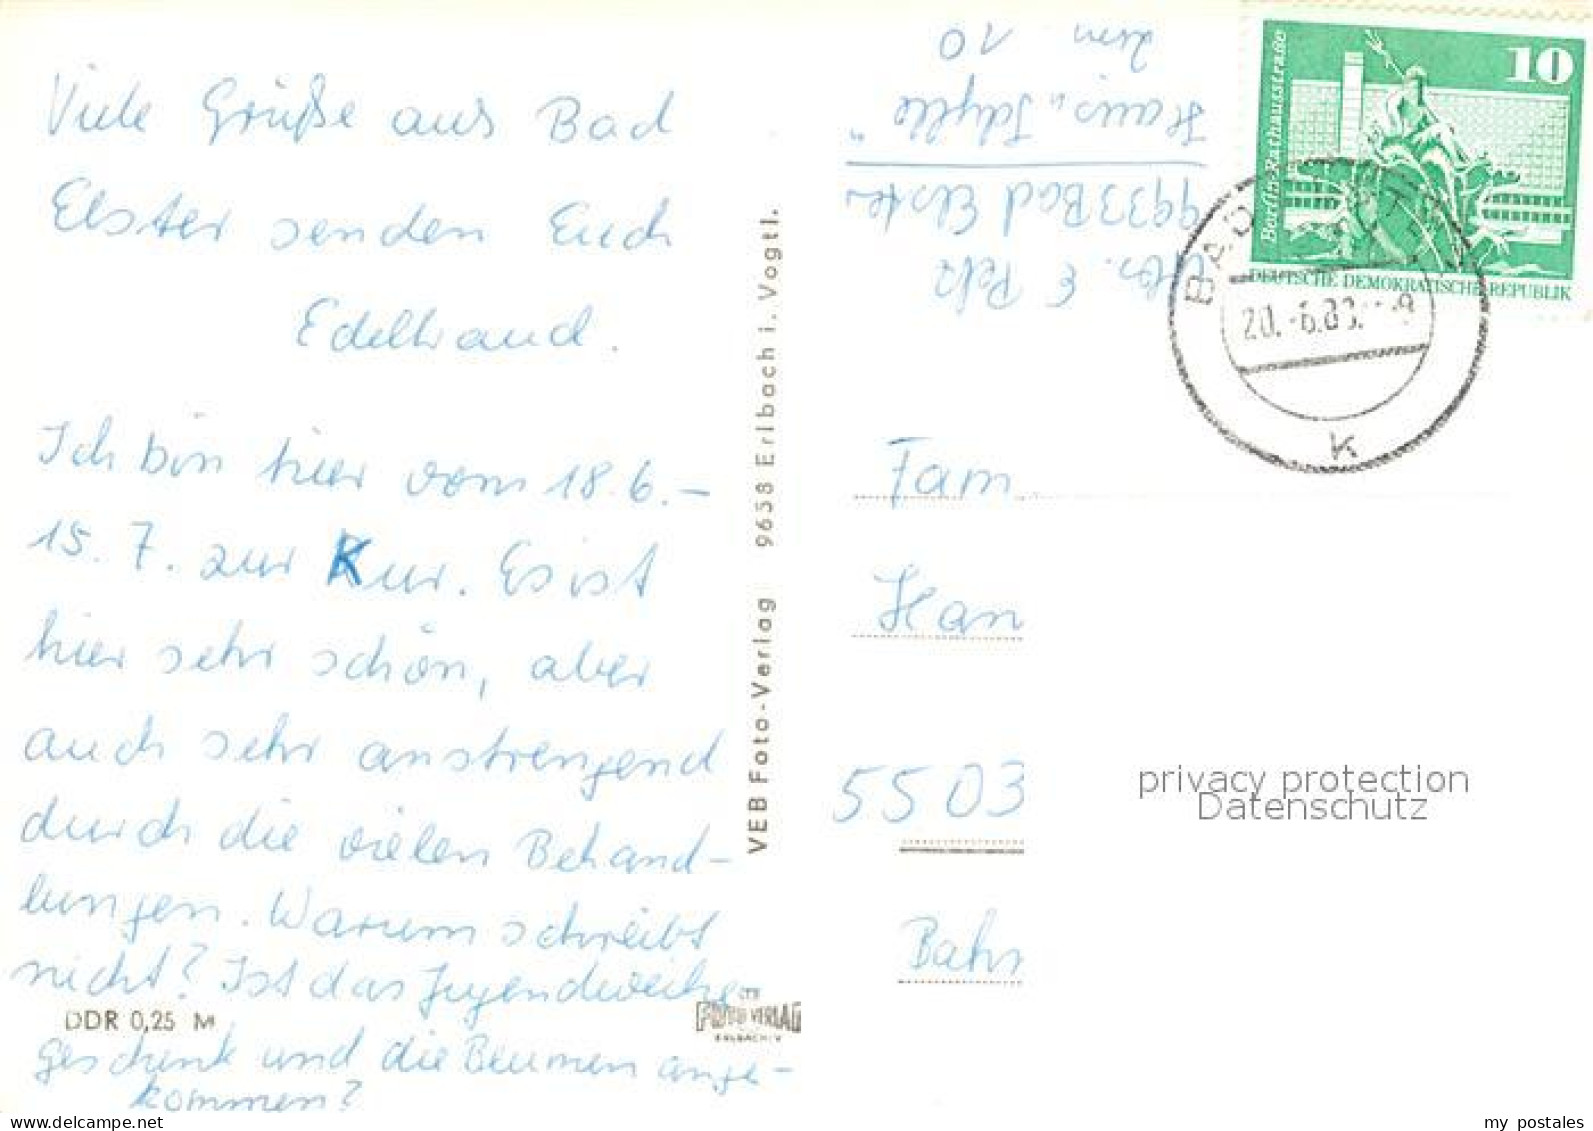 Viele Grüße aus Bad
Elster senden Euch
Edeltraud.
Ich bin hier vom 18.6.–
15.7. zur Kur. Es ist
hier sehr schön, aber
auch sehr anstrengend
durch die vielen Behand–
lungen. Warum schreibt
nicht? Ist das Jugendweihe
DDR 0,25 M
geschenk und die Blumen ange–
kommen?
VEB Foto-Verlag 9658 Erlbach i. Vogtl.
FOTO VERLAG
ERLBACH/V
E Pelz
9933 Bad Elster
Haus „Idylle"
10
10
Berlin-Rathausstraße
DEUTSCHE DEMOKRATISCHE REPUBLIK
BAD
20.-6.83.
k
Fam
Han
5503
Bahn
privacy protection
Datenschutz
www.delcampe.net
my_postales